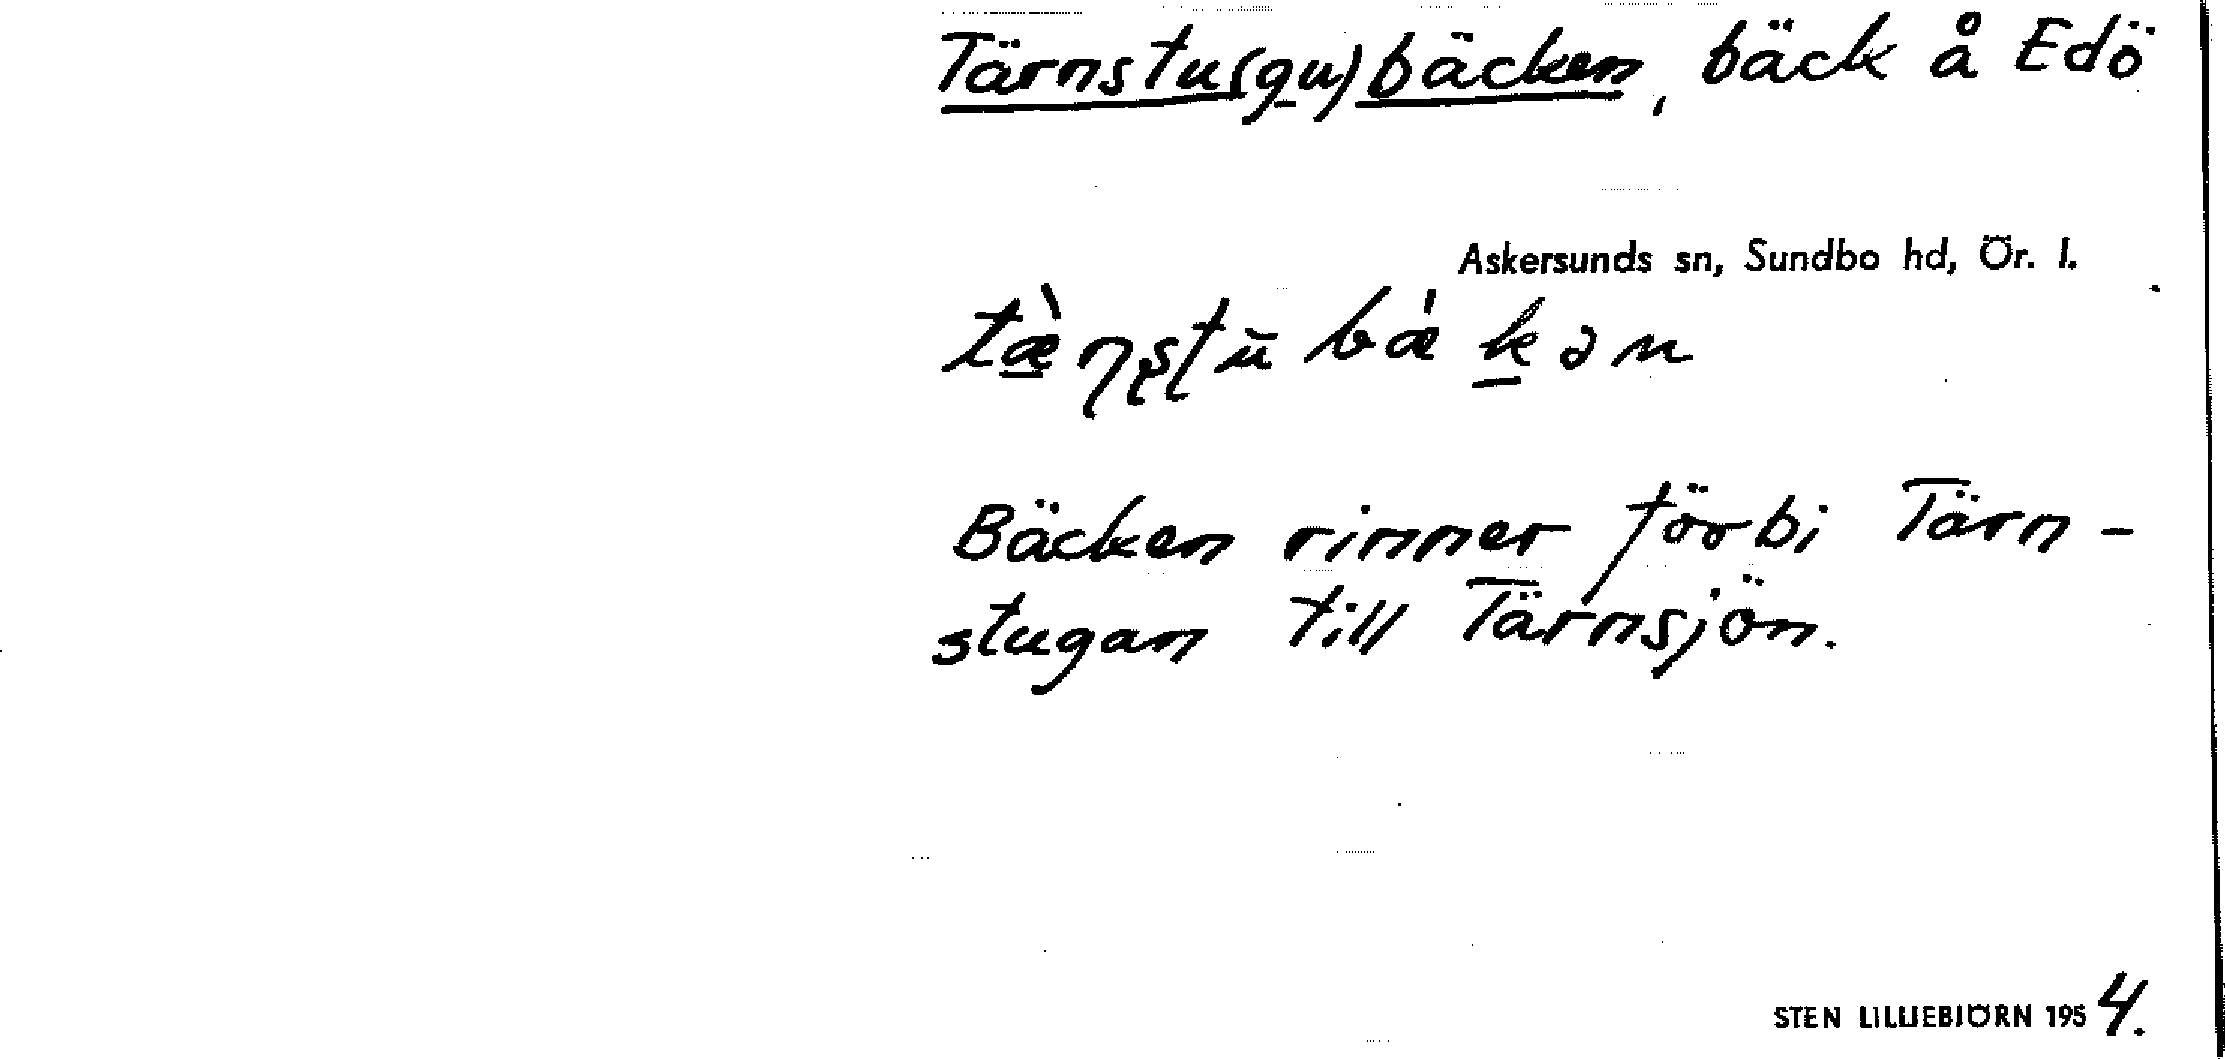 Tärnstu(gu)bäcken, bäck å Edö
Askersunds sn, Sundbo hd, Ör. l.
tæ̀ɳʂʈū bǽkən
Bäcken rinner förbi Tärn-
stugan till Tärnsjön.
STEN LILLIEBJÖRN 1954.